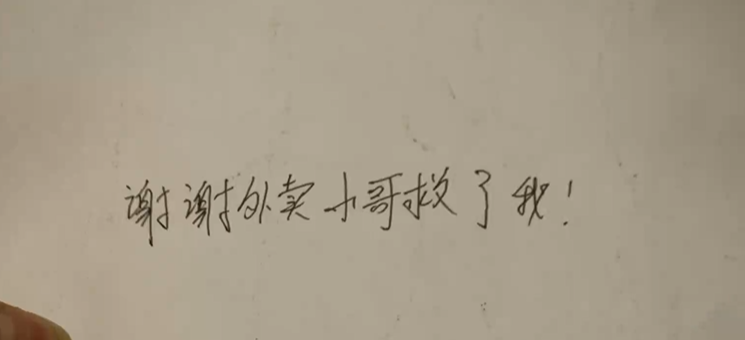 谢谢外卖小哥救了我!